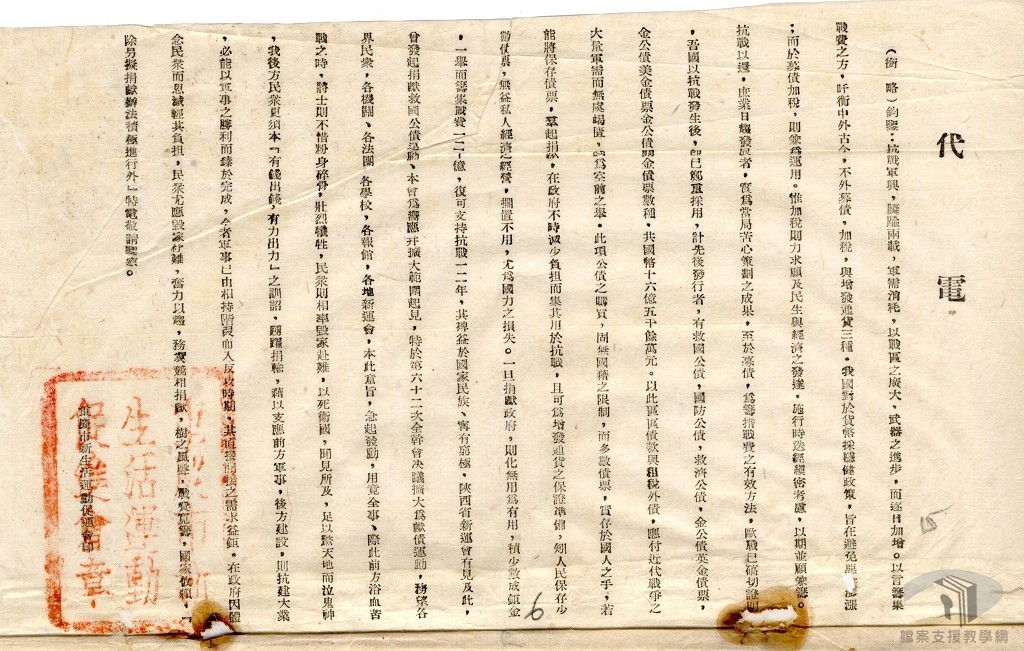 代電
（銜略）鈞鑒：抗戰軍興，瞬踰兩載，軍需消耗，以戰區之廣大、武器之進步，而逐日加增。以言籌集
戰費之方，吁衡中外古今，不外募債，加稅，與增發通貨三種。我國對於貨幣採穩健政策，旨在避免惡性膨漲
；而於募債加稅，則兼為運用。惟加稅則力求顧及民生與經濟之發達。施行時迭經縝密考慮，以期並顧兼籌。
抗戰以還，產業日趨發展者，實為當局苦心策劃之成果，至於募債，為籌措戰費之有效方法，歐戰已確切證明
，吾國以抗戰發生後，即已鄭重採用，計先後發行者，有救國公債，國防公債，救濟公債，金公債英金債票，
金公債美金債票金公債關金債票數種，共國幣十六億五千餘萬元。以此區區債款與租稅外債，應付近代戰爭之
大量軍需而無虞竭匱，誠為空前之舉。此項公債之購買，固無國籍之限制，而多數債票，實存於國人之手，若
能將保存債票，羣起捐獻，在政府不時減少負担而集其用於抗戰，且可為增發通貨之保證準備，矧人民保存少
數債票，無益私人經濟之經營，擱置不用，尤為國力之損失。一旦捐獻政府，則化無用為有用，積少數成鉅金
，一舉而籌集戰費一二億，復可支持抗戰一二年，其裨益於國家民族、寗有窮極，陝西省新運會有見及此，
曾發起捐獻救國公債運動、本會為響應幷擴大範圍起見，特於第六十二次全幹會決議擴大為獻債運動，務望各
界民衆，各機關、各法團、各學校，各報館，各地新運會，本此意旨，急起發動，用竟全事、際此前方浴血苦
戰之時，將士則不惜粉身碎骨，壯烈犧牲，民衆則相率毀家赴難，以死衛國，聞見所及，足以驚天地而泣鬼神
，我後方民衆更須本『有錢出錢，有力出力』之訓詔，踴躍捐輸，藉以支應前方軍事，後方建設，則抗建大業
，必能以軍事之勝利而臻於完成，今者軍事已由相持階段而入反攻時期，其直接間接之需求益鉅。在政府因體
念民衆而思減輕其負担，民衆尤應毀家紓難，奮力以趨，務冀競相捐獻，樹之風聲，戰費寬籌，國家攸賴，「
除另擬捐獻辦法積極進行外」特電敬請鑒察。
重慶市新生活運動促進會叩
生活運動
15
6
檔案支援教學網